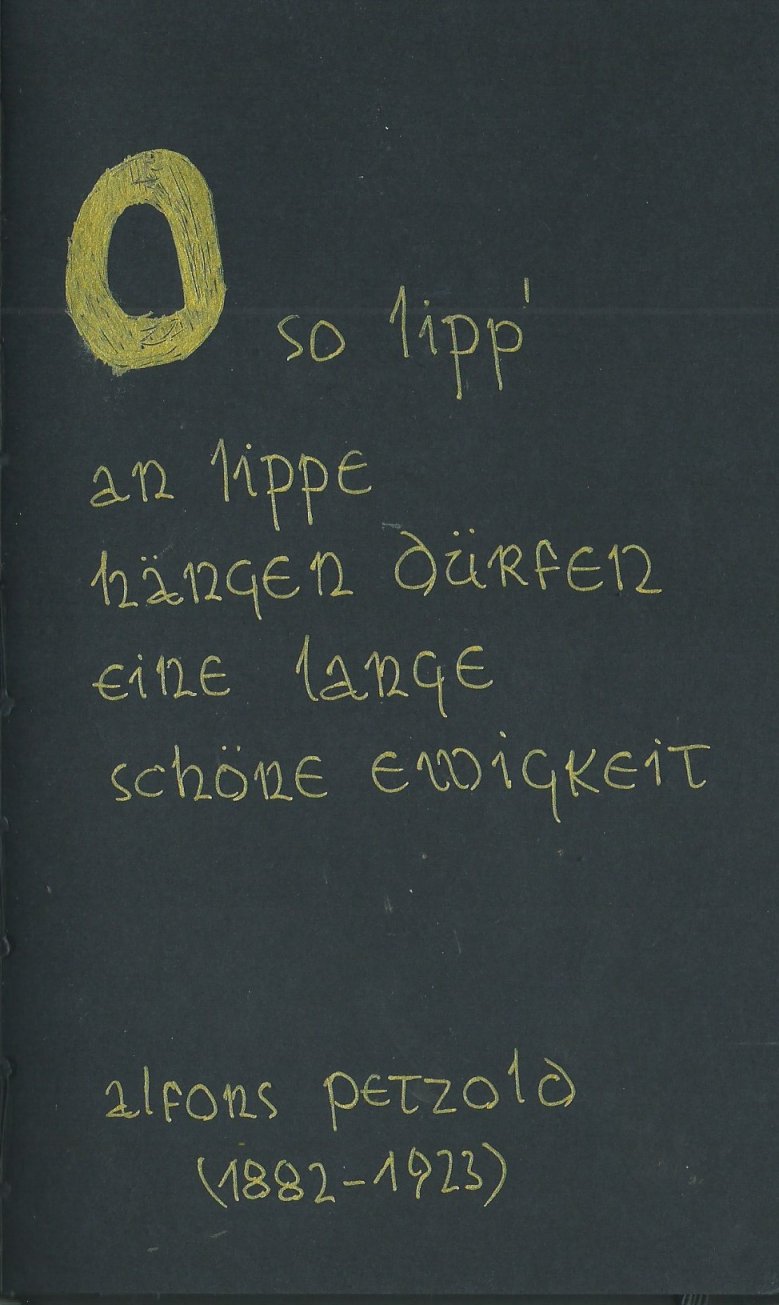 O so lipp'
an lippe
hängen dürfen
eine lange
schöne ewigkeit
alfons petzold
(1882-1923)